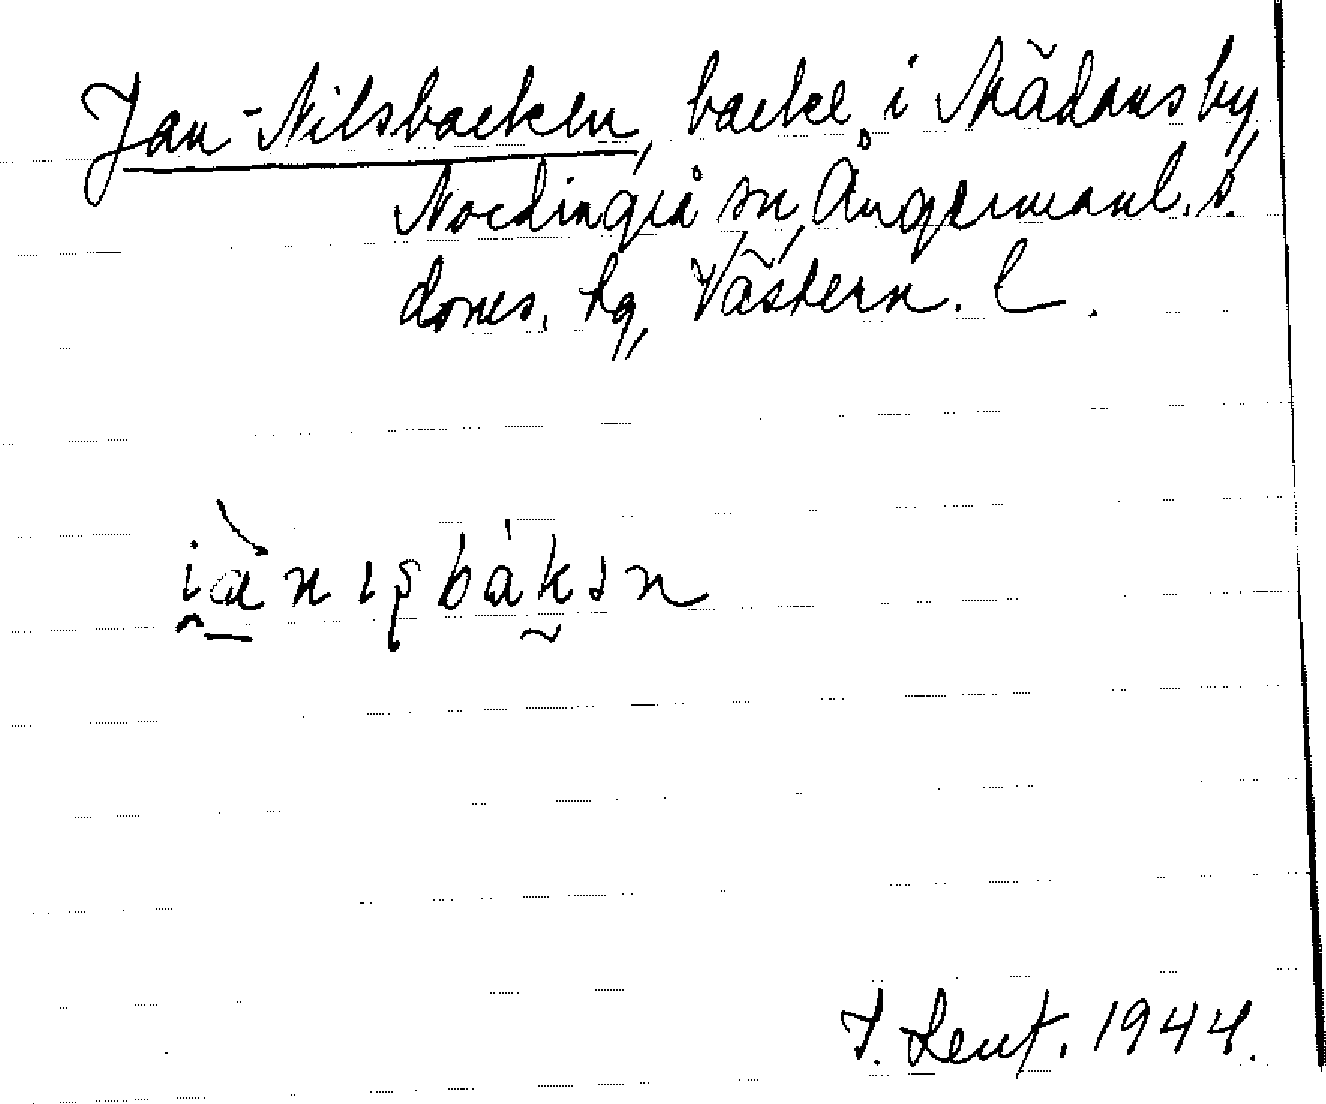 Jan-Nilsbacken, backe i Mädans by,
Nordingrå sn, Ångermanl. s.
doms. tg, Västern. l.
J. Lent. 1944.